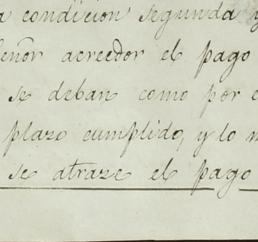 a condicion segunda y
señor acreedor el pago
se deban como por e
plazo cumplido, y lo m
se atraze el pago